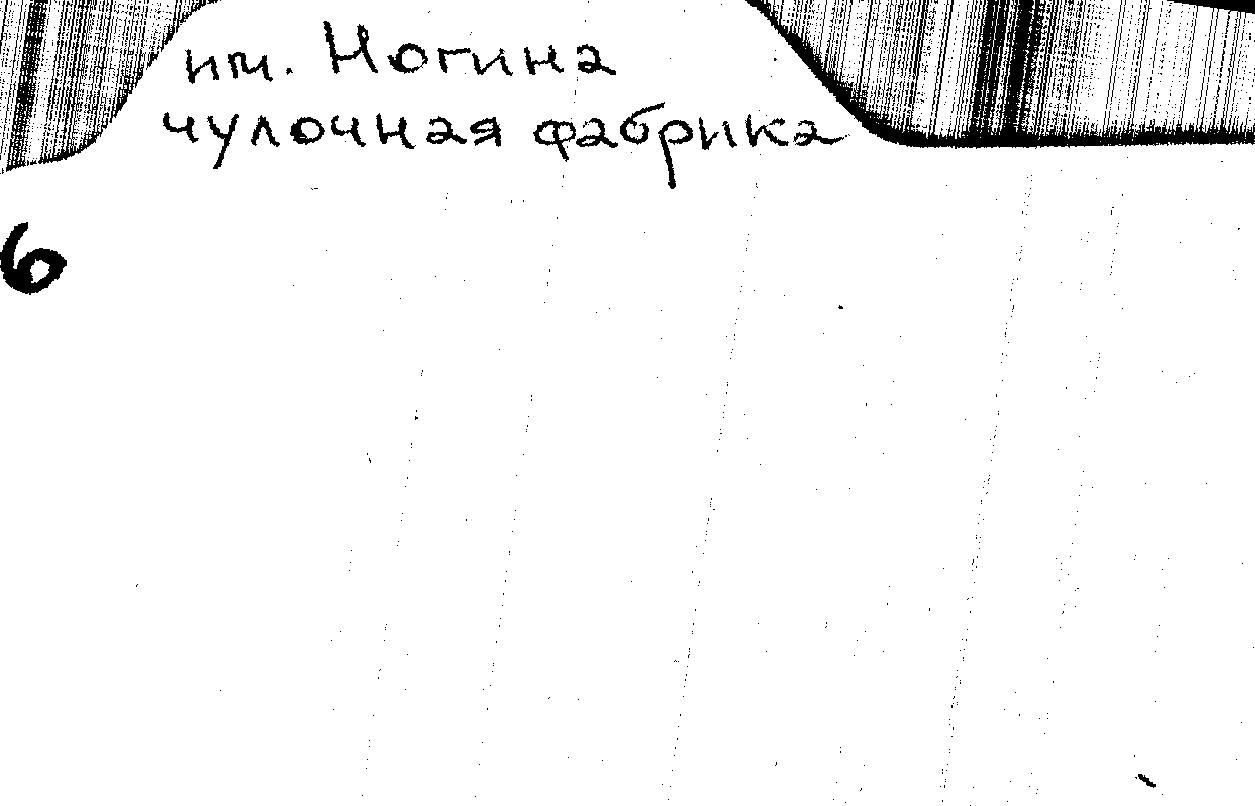 им. Ногина
чулочная фабрика
6